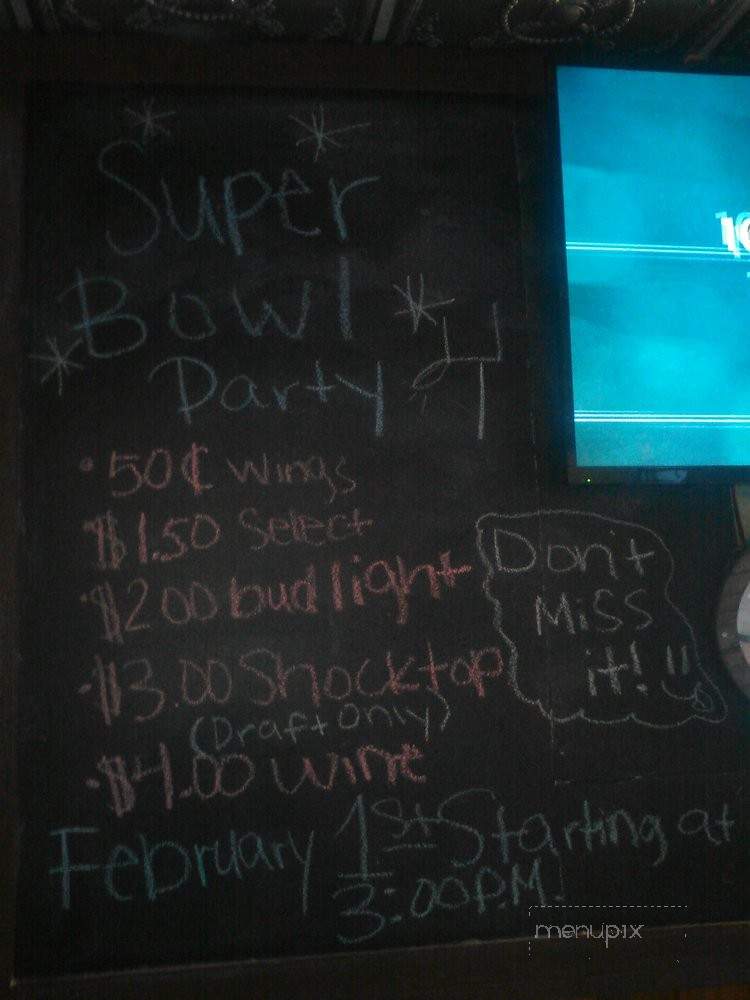 Super
Bowl
Party
• 50¢ wings
$1.50 Select
• $2.00 bud light
• $3.00 Shocktop
(Draft Only)
• $4.00 wine
Don't
Miss
it!
February 1st Starting at
3:00 P.M.
menupix